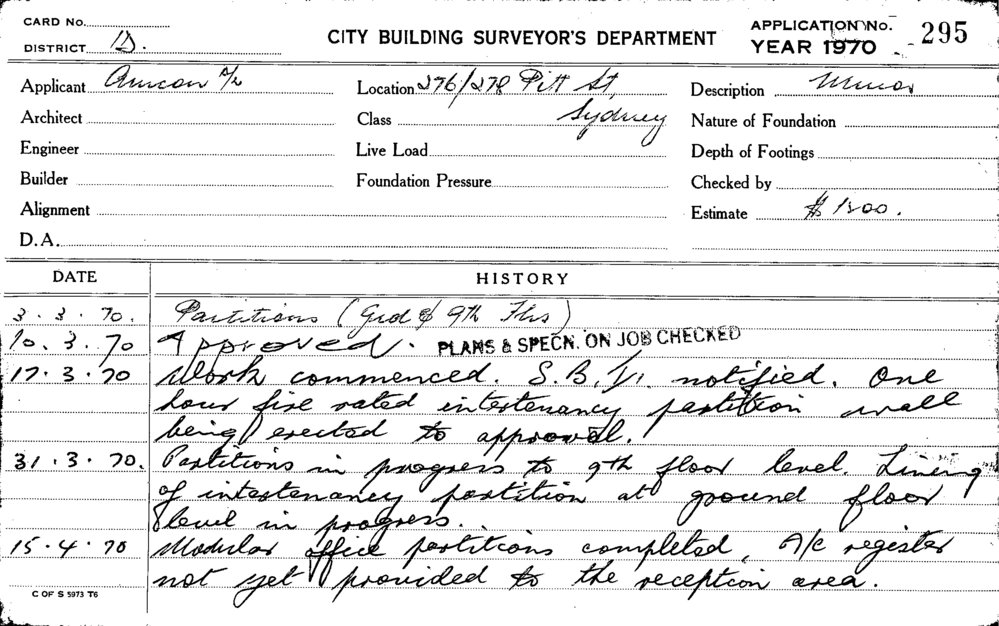 CARD No.
DISTRICT D.
CITY BUILDING SURVEYOR'S DEPARTMENT
APPLICATION No. 295
YEAR 1970
Applicant Amcon P/L
Location 276/278 Pitt St,
Sydney
Description Minor
Architect
Class
Nature of Foundation
Engineer
Live Load
Depth of Footings
Builder
Foundation Pressure
Checked by
Alignment
Estimate $1800.
D.A.
DATE HISTORY
3.3.70. Partitions (Grd & 9th Flrs)
10.3.70 Approved. PLANS & SPECN. ON JOB CHECKED
17.3.70 Work commenced. S.B.I. notified. One
hour fire rated intertenancy partition wall
being erected to approval.
31.3.70. Partitions in progress to 9th floor level. Lining
of intertenancy partition at ground floor
level in progress.
15.4.70 Modular office partitions completed, A/c register
not yet provided to the reception area.
C OF S 5973 T6